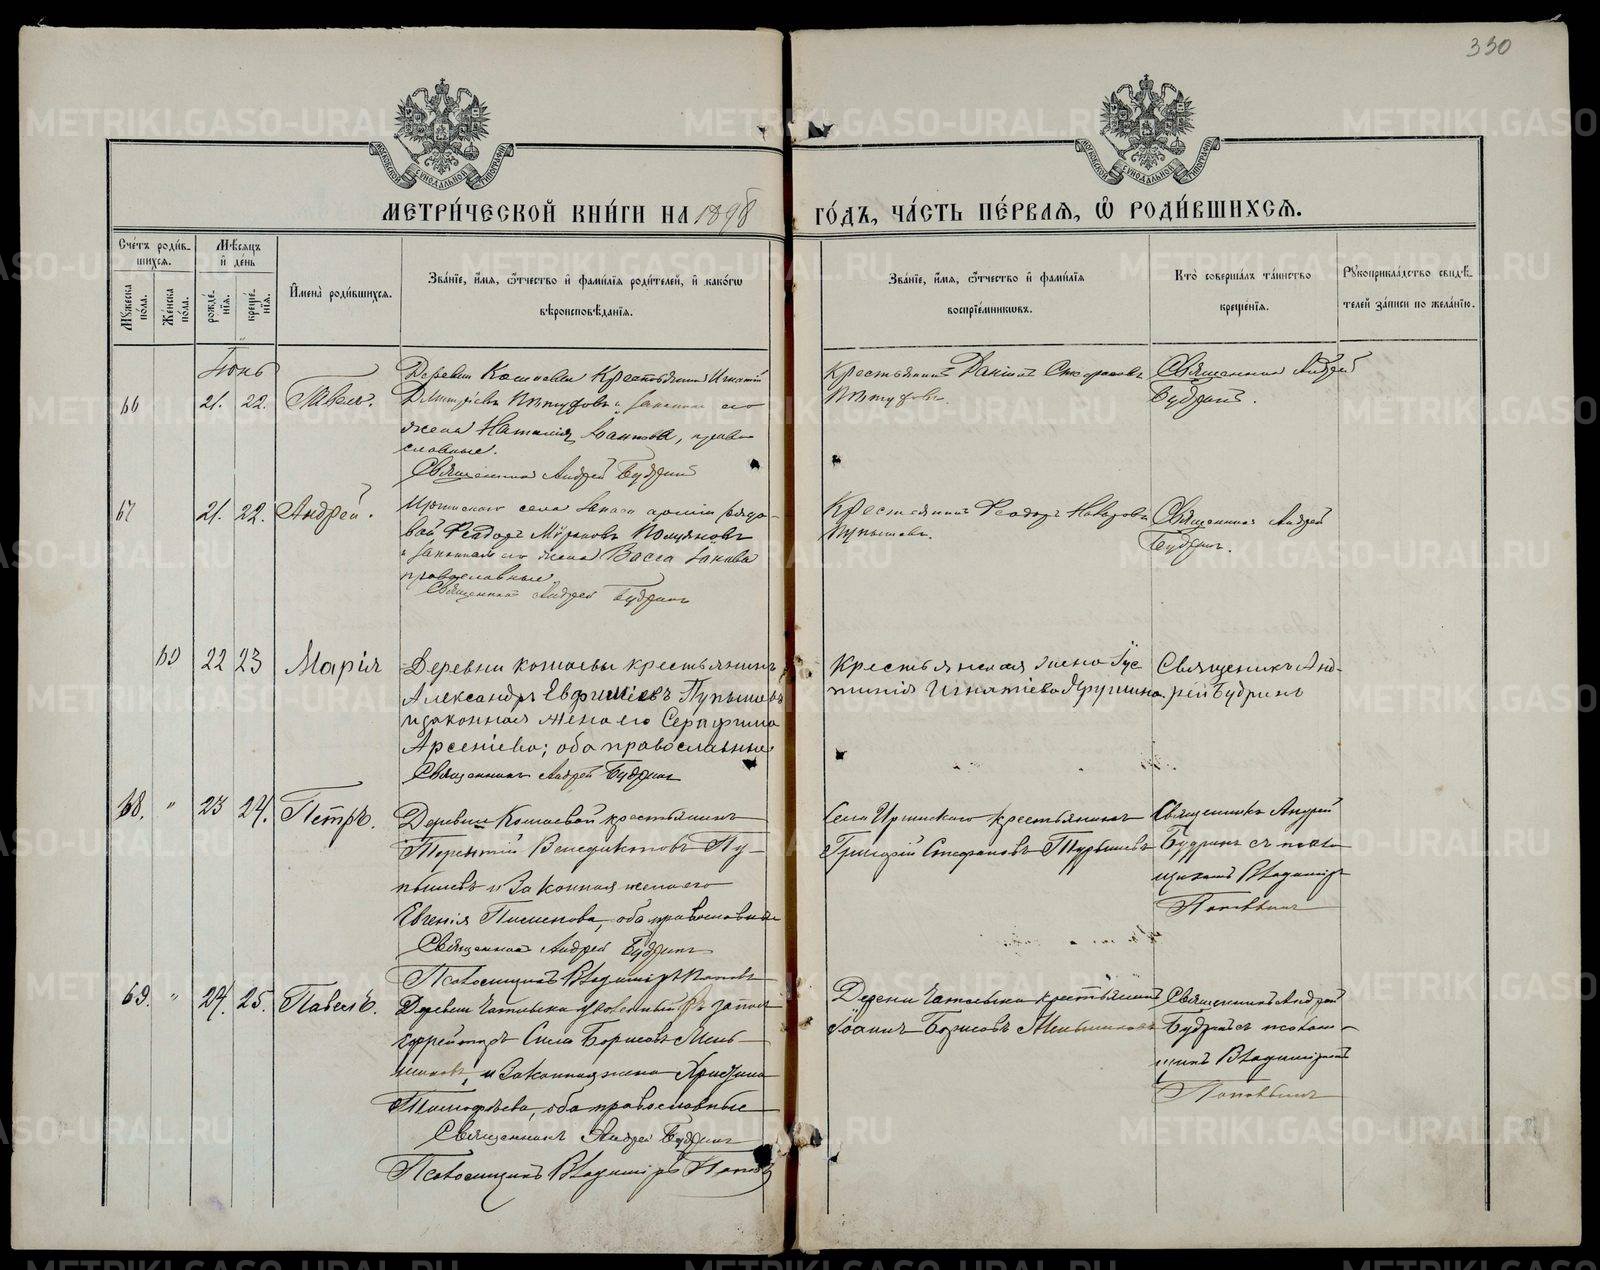 330
МОСКОВСКОЙ СѴНОДАЛЬНОЙ ТИПОГРАФІИ
МОСКОВСКОЙ СѴНОДАЛЬНОЙ ТИПОГРАФІИ
МЕТРИ́ЧЕСКОЙ КНИ́ГИ НА 1898 ГО́ДЪ, ЧА́СТЬ ПЕ́РВАЯ, Ѽ РОДИ́ВШИХСЯ.
Сче́тъ роди́в-
шихся.
Му́жеска по́ла.
Же́нска по́ла.
Мѣ́сяцъ
и́ де́нь
рожде́нїя.
креще́нїя.
И́мена̀ роди́вшихся.
Зва́нїе, и́мя, ѻ́тчество и́ фами́лїя роди́телей, и́ како́гѡ
вѣроисповѣ́данїя.
Зва́нїе, и́мя, ѻ́тчество и́ фами́лїя
воспрїе́мникѡвъ.
Кто̀ соверша́лъ та́инство
креще́нїя.
Рꙋкоприкла́дство свидѣ́-
телей за́писи по жела́нїю.
Іюнь
66 21. 22. Павелъ.
Деревни Кошаевы Крестьянинъ Игнатій
Димитріевъ и законная его
жена Наталія Іоаннова, право-
славные.
Священникъ Андрей Будринъ
Крестьянинъ
Священникъ Андрей
Будринъ.
67 21. 22. Андрей.
Иргинскаго села запаса арміи рядо-
вой Ѳеодоръ
и законная его жена Васса
православные
Священникъ Андрей Будринъ
Крестьянинъ Ѳеодоръ
Пупышевъ.
Священникъ Андрей
Будринъ.
60 22 23 Марія
Деревни Кошаевы крестьянинъ
Александръ Евфиміевъ Пупышевъ
и законная жена его Серафима
Арсеніева; оба православные
Священникъ Андрей Будринъ
Крестьянская жена Іус
тинія Игнатіева Ярушина
Священикъ Анд-
рей Будринъ
68. " 23 24. Петръ.
Деревни Кошаевой крестьянинъ
Терентій Венедиктовъ Пу-
пышевъ и законная жена его
Евгенія Пименова, оба православные
Священникъ Андрей Будринъ
Псаломщикъ Владиміръ Поповъ
Села Иргинскаго крестьянинъ
Григорій Стефановъ Турышевъ
Священникъ Андрей
Будринъ съ псало
мщикомъ Владимір
Поповымъ
69. " 24. 25. Павелъ.
Деревни уволенный въ запасъ
ефрейторъ Сила Борисовъ Мень-
шиковъ, и законная жена Христина
Тимофѣева, оба православные
Священникъ Андрей Будринъ
Псаломщикъ Владиміръ Поповъ
Деревни крестьянинъ
Іоаннъ Борисовъ Меньшиковъ
Священникъ Андрей
Будринъ съ псалом-
щикъ Владиміромъ
Поповымъ
METRIKI.GASO-URAL.RU